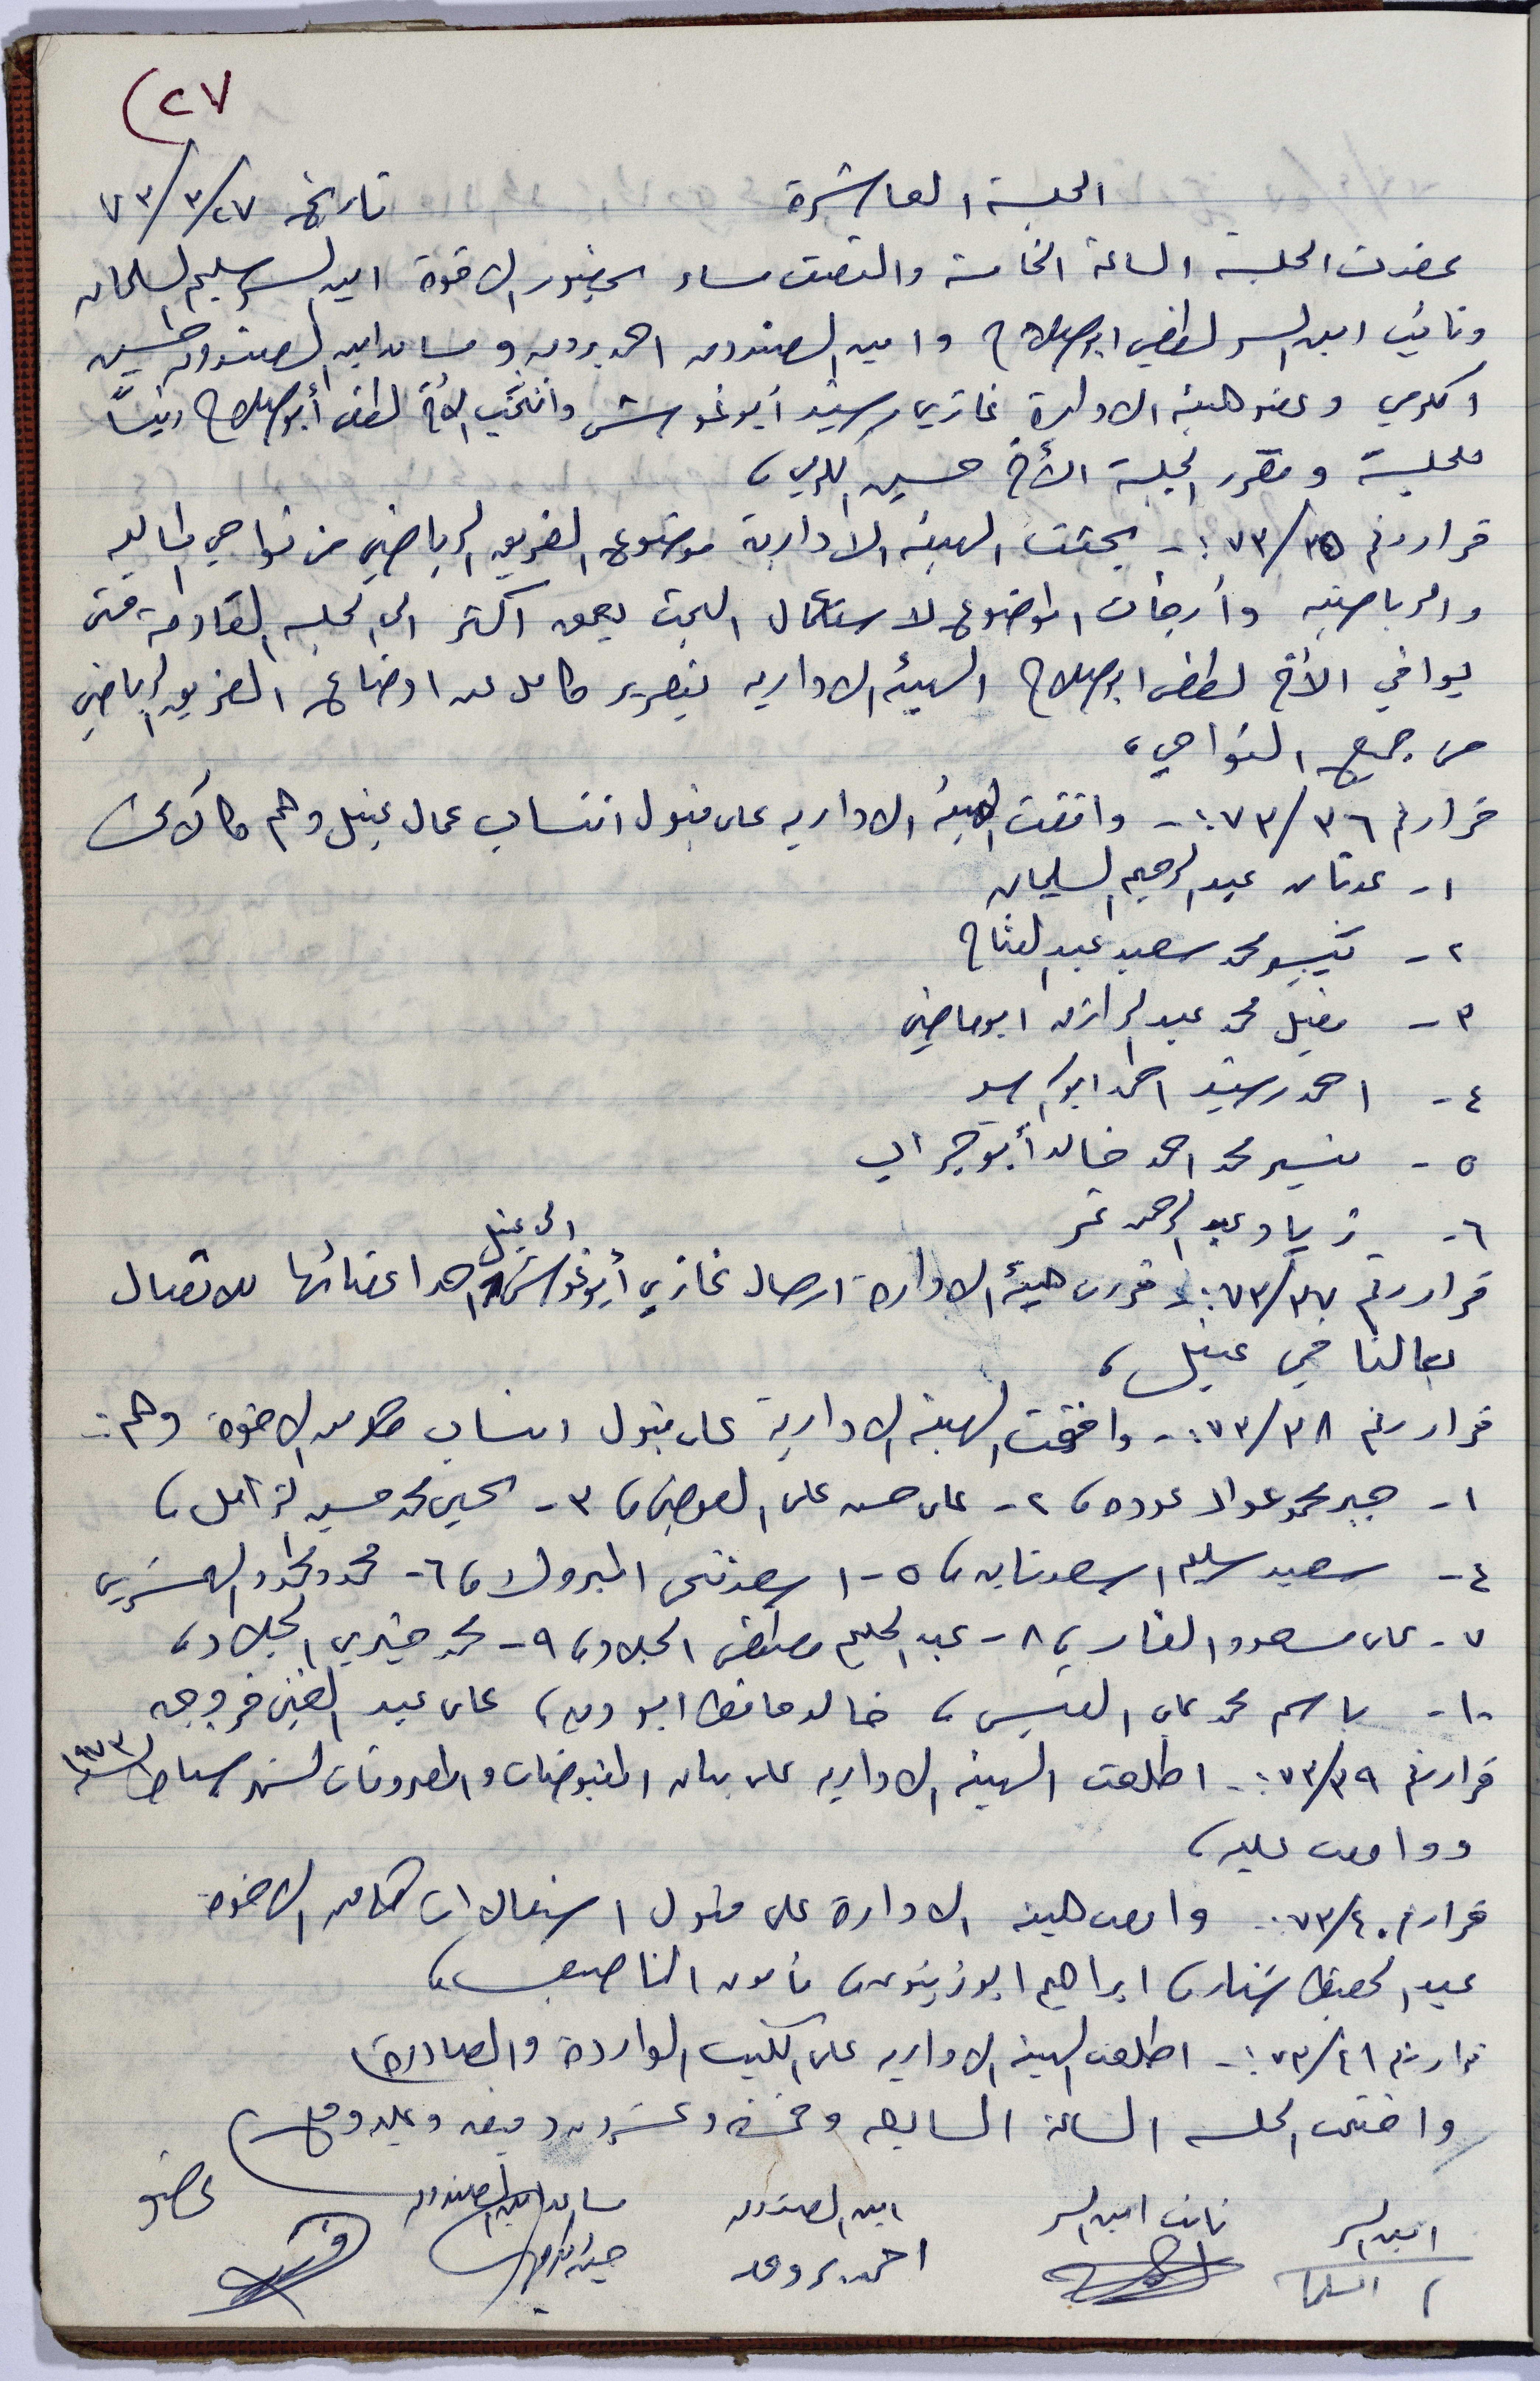 ٢٧)
الجلسة العاشرة تاريخ ٧٣/٣/٢٧
عقدت الجلسة الساعة الخامسة والنصف مساء بحضور الاخوة امين السر سليم السلمان
ونائب امين السر لطفي ابو صلاح وامين الصندوق احمد بروق ومساعد امين الصندوق حسين
اكرمي وعضو هيئة الادارة غازي رشيد أبو غوش وانتُخِب الأخ لطفي أبو صلاح رئيساً
للجلسة ومقرر الجلسة الأخ حسين اكرمي،
قرار رقم ٧٣/٣٥:- بحثت الهيئة الادارية موضوع الفريق الرياضي من نواحي المالية
والرياضية وأرجأت الموضوع لاستكمال البحث بعمق اكثر الى الجلسة القادمة حتى
يوافي الأخ لطفي ابو صلاح الهيئة الادارية بتقرير كامل عن اوضاع الفريق الرياضي
من جميع النواحي،
قرار رقم ٧٣/٣٦:- وافقت الهيئة الادارية على قبول انتساب عمال عنبل وهم كالآتي
١- عدنان عبد الرحيم السليمان
٢- محمد سعيد عبد الفتاح
٣- محمد عبد الرازق ابو ماضي
٤- احمد رشيد احمد ابو
٥- تيسير محمد احمد خالد أبو جراب
٦- زياد عبد الرحمن عمر
قرار رقم ٧٣/٣٧:- قررت هيئة الادارة ارسال غازي أبو غوش الى عنبل احد اعضائها للاتصال
بعمالنا في عنبل،
قرار رقم ٧٣/٣٨:- وافقت الهيئة الادارية على قبول انتساب كلا من الاخوة وهم:-
١- جبر محمود عواد عوده، ٢- على حسن على العوضي، ٣- محمد حسين الزامل،
٤- سعيد سليم اسعد، ٥- اسعد المبروك، ٦- محمود محمد
٧- على مسعود الفارس، ٨- عبد الحليم مصطفى الجلاد، ٩- محمد خيري الجلاد،
١٠- باسم محمد على القيسي، خالد حافظ ابو ديه، على عبد الغني فروجه
قرار رقم ٧٣/٣٩:- اطلعت الهيئة الادارية على بيان المقبوضات والمصروفات لشهر شباط لسنة ١٩٧٣
ووافقت عليه،
قرار رقم ٧٣/٤٠:- وافقت هيئة الادارة على قبول استقالات كلا من الاخوة
عبد الحفيظ شنار، ابراهيم ابو زيتون، مأمون الناصيف،
قرار رقم ٧٣/٤١:- اطلعت الهيئة الادارية على الكتب الواردة والصادرة،
واختتمت الجلسة الساعة السابعة وخمسة وعشرون دقيقة وعليه وقع،
امين السر نائب امين السر امين الصندوق مساعد امين الصندوق عضو
السلمان احمد بروق حسين اكرمي